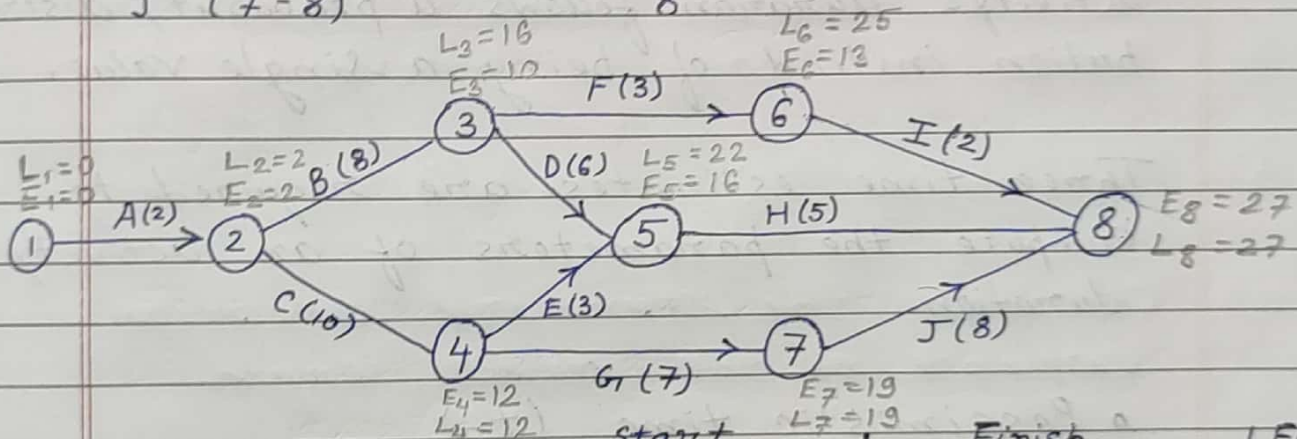 J (7-8)
L₃=16
E₃=10
L₆=25
E₆=13
F(3)
3
6
I(2)
L₁=0
E₁=0
L₂=2
E₂=2
B(8)
D(6)
L₅=22
E₅=16
A(2)
H(5)
E₈=27
L₈=27
1
2
5
8
C(10)
E(3)
J(8)
4
7
G(7)
E₄=12
L₄=12
E₇=19
L₇=19
start
Finish